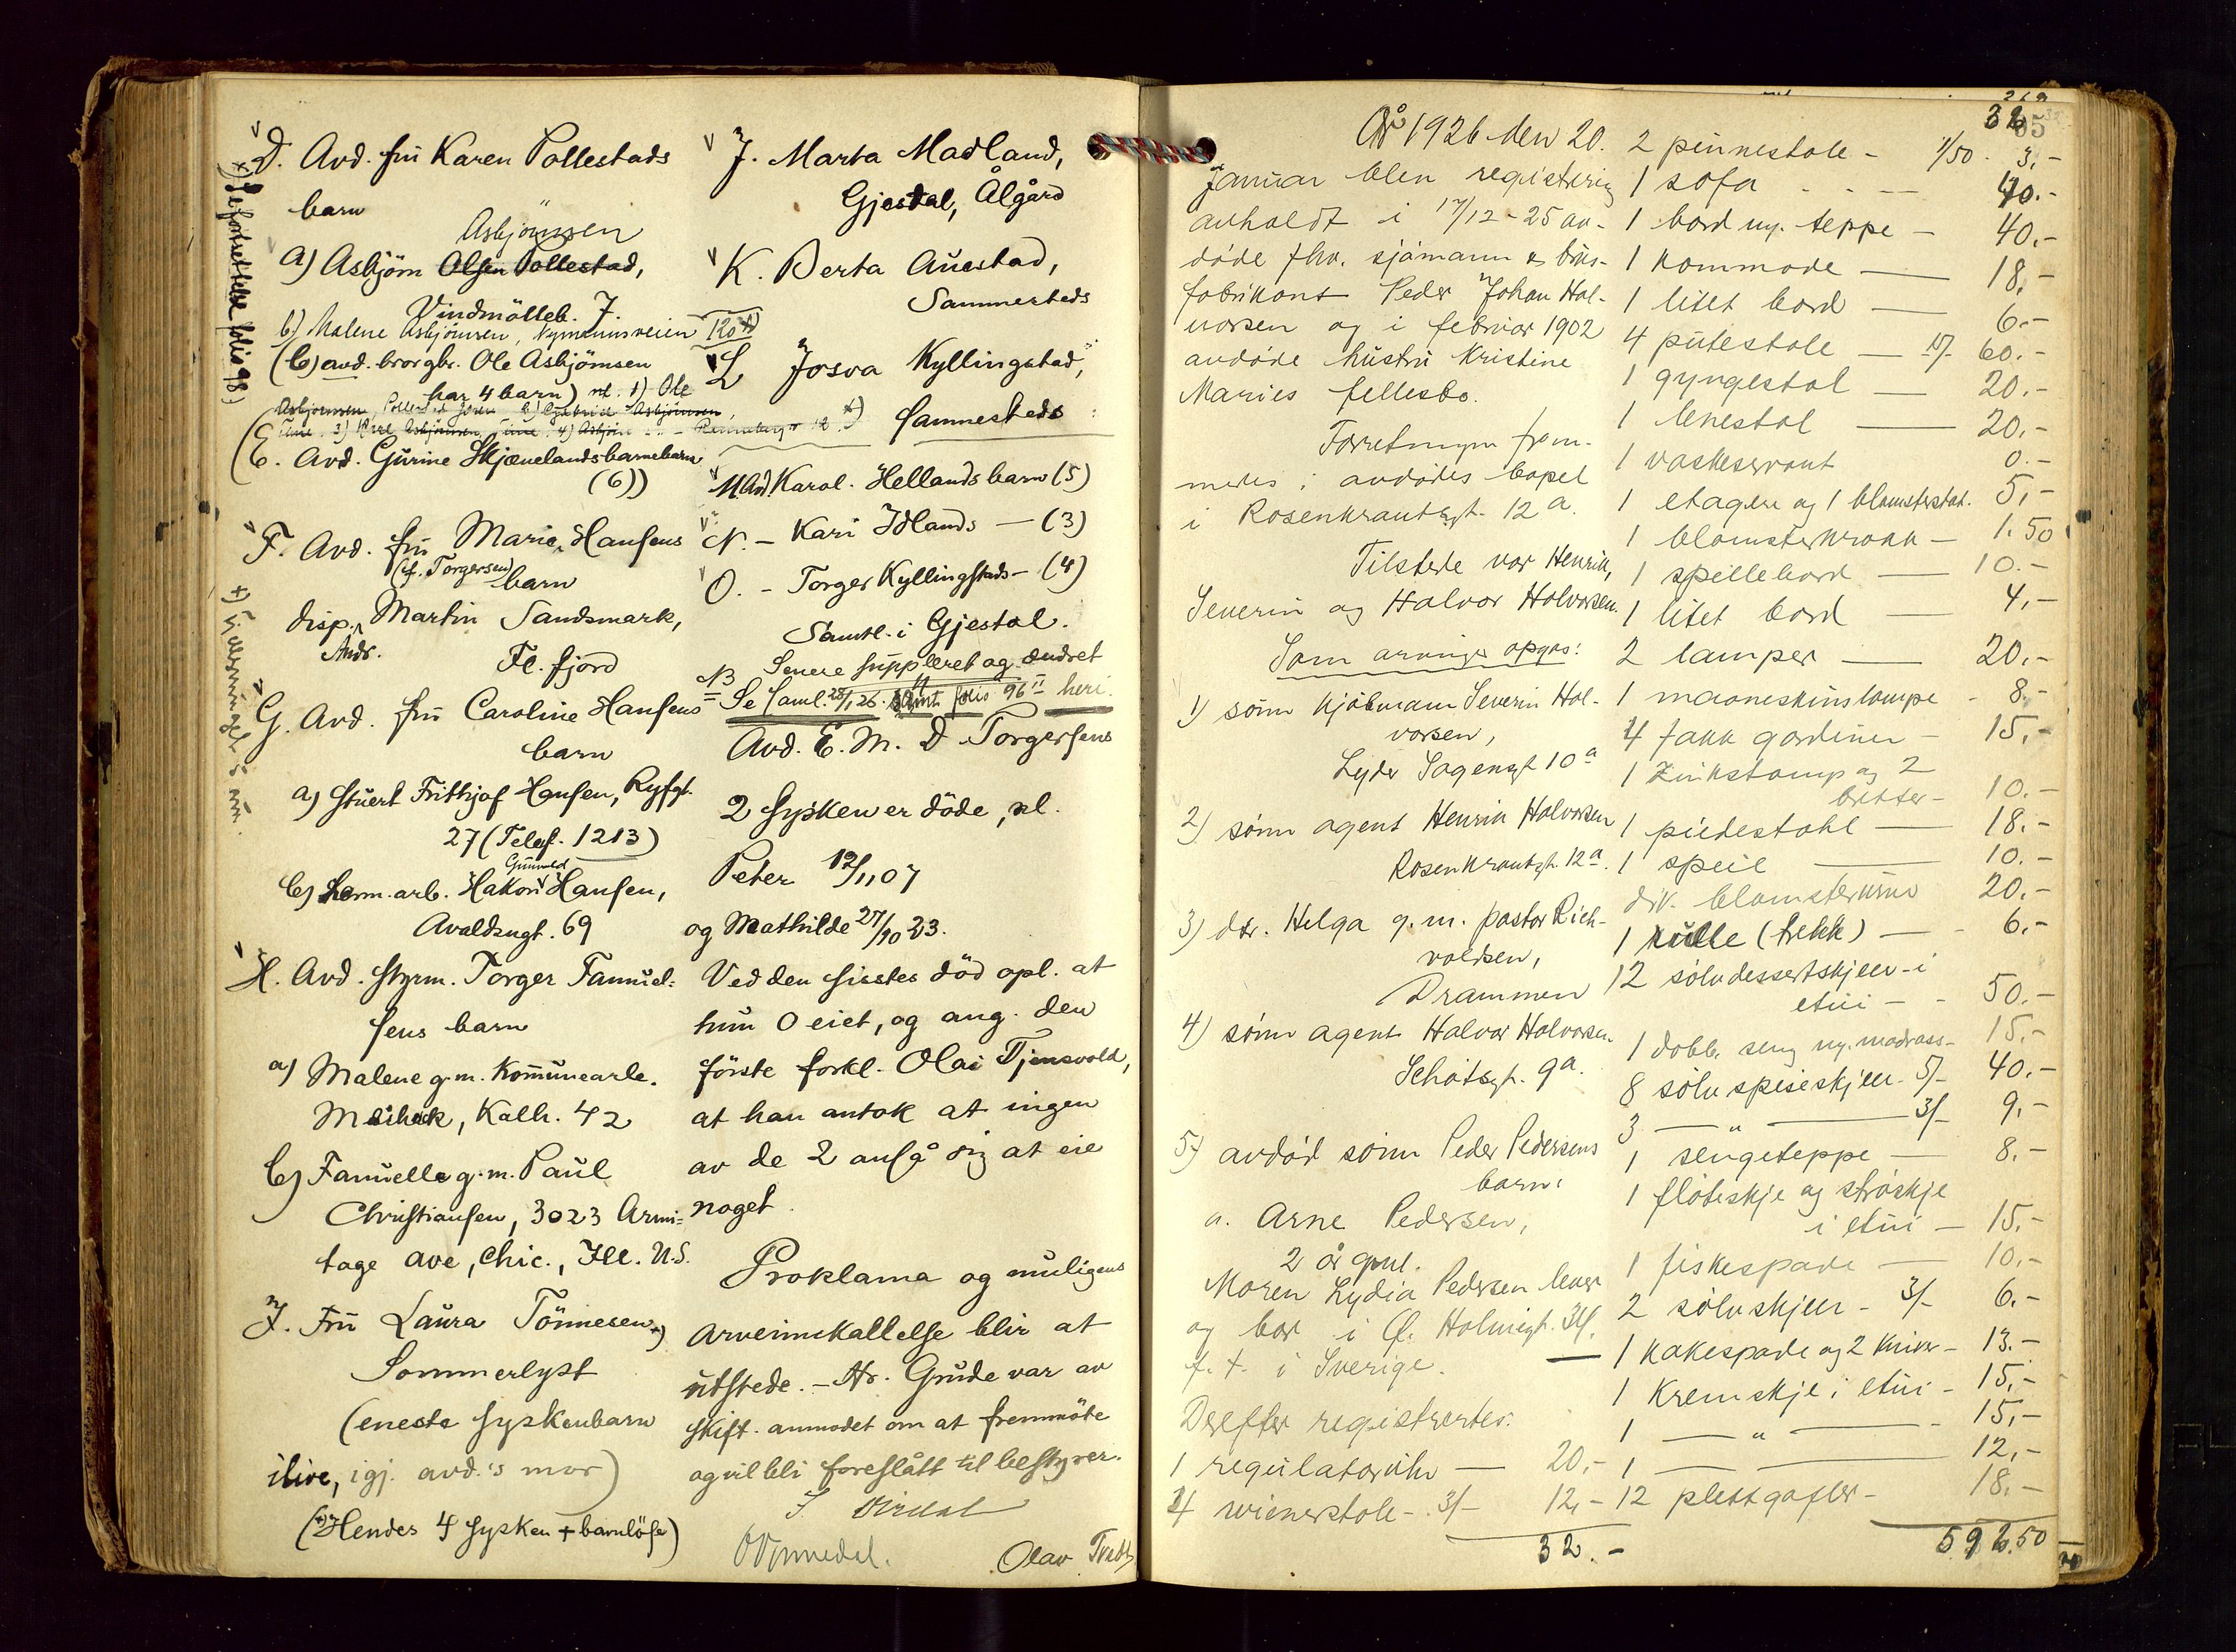 D. Avd. fru Karen Pollestads
barn
Asbjörnsen
a) Asbjörn Olsen Pollestad,
Vindmölleb. 7.
b) Malene Asbjörnsen, Nymannsveien 120
(b) avd. brorgbr. Ole Asbjörnsen
har 4 barn) nl. 1) Ole
Asbjörnsen, 2) Gabriel Asbjörnsen,
Time. 3) Karl Asbjörnsen, Time. 4) Asbjörn
(E. Avd. Gurine Skjævelands barnebarn
(6))
F. Avd. fru Marie Hansens
(f. Torgersen) barn
disp. Martin Sandsmark,
Andr.
Fl. fjord
G. Avd. fru Caroline Hansens
barn
a) Stuert Frithjof Hansen, Ryfgt.
27 (Telef. 1213)
Gunvald
b) herm. arb. Hakon Hansen,
Avaldsngt. 69
H. Avd. styrm. Torger Fanuel-
sens barn
a) Malene g.m. Kommunearb.
Meihack, Kalh. 42
b) Fanuelle g.m. Paul
Christiansen, 3023 Armi-
tage ave, Chic., Ill. U.S.
I. Fru Laura Tönnesen x)
Sommerlyst
(eneste syskenbarn
ilive, igj. avd.'s mor)
(x) Hendes 4 sysken + barnlöse)
x) Se fortsettelse folio 98)
J. Marta Madland,
Gjesdal, Ålgård
K. Berta Auestad,
Sammesteds
L Josva Kyllingstad,
Sammesteds
M Avd Karol. Hellands barn (5)
N. - Kari Idlands - (3)
O. - Torger Kyllingstads - (4)
Samtl. i Gjestal.
NB Senere suppleret og endret
Se saml. 28/1 26. samt folio 96 heri.
Avd. E. M. D Torgersens
2 sysken er döde, nl.
Peter 12/1 07
og Mathilde 27/10 23.
Ved den sisstes död opl. at
hun 0 eiet, og ang. den
förste forkl. Olai Tjensvold,
at han antok at ingen
av de 2 anså sig at eie
noget.
Proklama og muligens
arveinnkallelse blir at
utstede. - Hr. Grude var av
skift. anmodet om at fremmöte
og vil bli foreslått til bestyrer.
Olav
År 1926 den 20.
januar blev registrering
avholdt i 17/12-25 av-
döde fhv. sjömann og brus-
fabrikant Peder Johan Hal-
vorsen og i februar 1902
avdöde hustru Kristine
Maries fellesbo.
Forretningen frem-
medes i avdödes bopel
i Rosenkrantzgt. 12 a.
Tilstede var Henrik,
Severin og Halvor Halvorsen.
Som arvinger opgas:
1) sönn kjöbmann Severin Hal-
vorsen,
Lyder Sagensgt 10 a
2) sönn agent Henrik Halvorsen
Rosenkrantzgt. 12 a.
3) dtr. Helga g.m. pastor Rich-
voldsen,
Drammen
4) sönn agent Halvor Halvorsen.
Schötsgt. 9 a.
5) avdöd sönn Peder Pedersens
barn:
a. Arne Pedersen,
2 år gml.
Moren Lydia Pedersen lever
og bor i Ø. Holmegt. 34.
f. t. i Sverige.
Derefter registrertes:
1 regulatoruhr — 20,-
4 wienerstole - 3/- 12,-
32.-
32
2 pinnestole - 1/50 - 3,-
1 sofa - 40.-
1 bord m. teppe - 40,-
1 kommode — 18,-
1 litet bord — 6.-
4 putestole — 15/- 60.-
1 gyngestol — 20.-
1 lenestol — 20,-
1 vaskeservant 0.-
1 etagere og 1 blomsterstat. 5,-
1 blomsterkrakk - 1.50
1 spillebord — 10.-
1 litet bord — 4,-
2 lamper — 20,-
1 maaneskinslampe - 8,-
4 fakk gardiner - 15,-
1 Zinkstamp og 2
bötter - 10.-
1 piedestahl — 18.-
1 speil — 10.-
div. blomsterurner 20.-
1 rulle (trekk) — 6.-
12 sölvdessertskjeer - i
etui - 50.-
1 dobb. seng m. madrass- 15.-
8 sölv spiseskjeer 5/- 40.-
3 — " — 3/- 9,-
1 sengeteppe — 8.-
1 flöteskje og ströskje
i etui - 15,-
1 fiskespade — 10.-
2 sölvskjeer - 3/- 6.-
1 kakespade og 2 kniver - 13.-
1 Kremskje i etui - 15,-
1 — " — 15,-
1 — — 12,-
12 plettgafler - 18.-
592.50